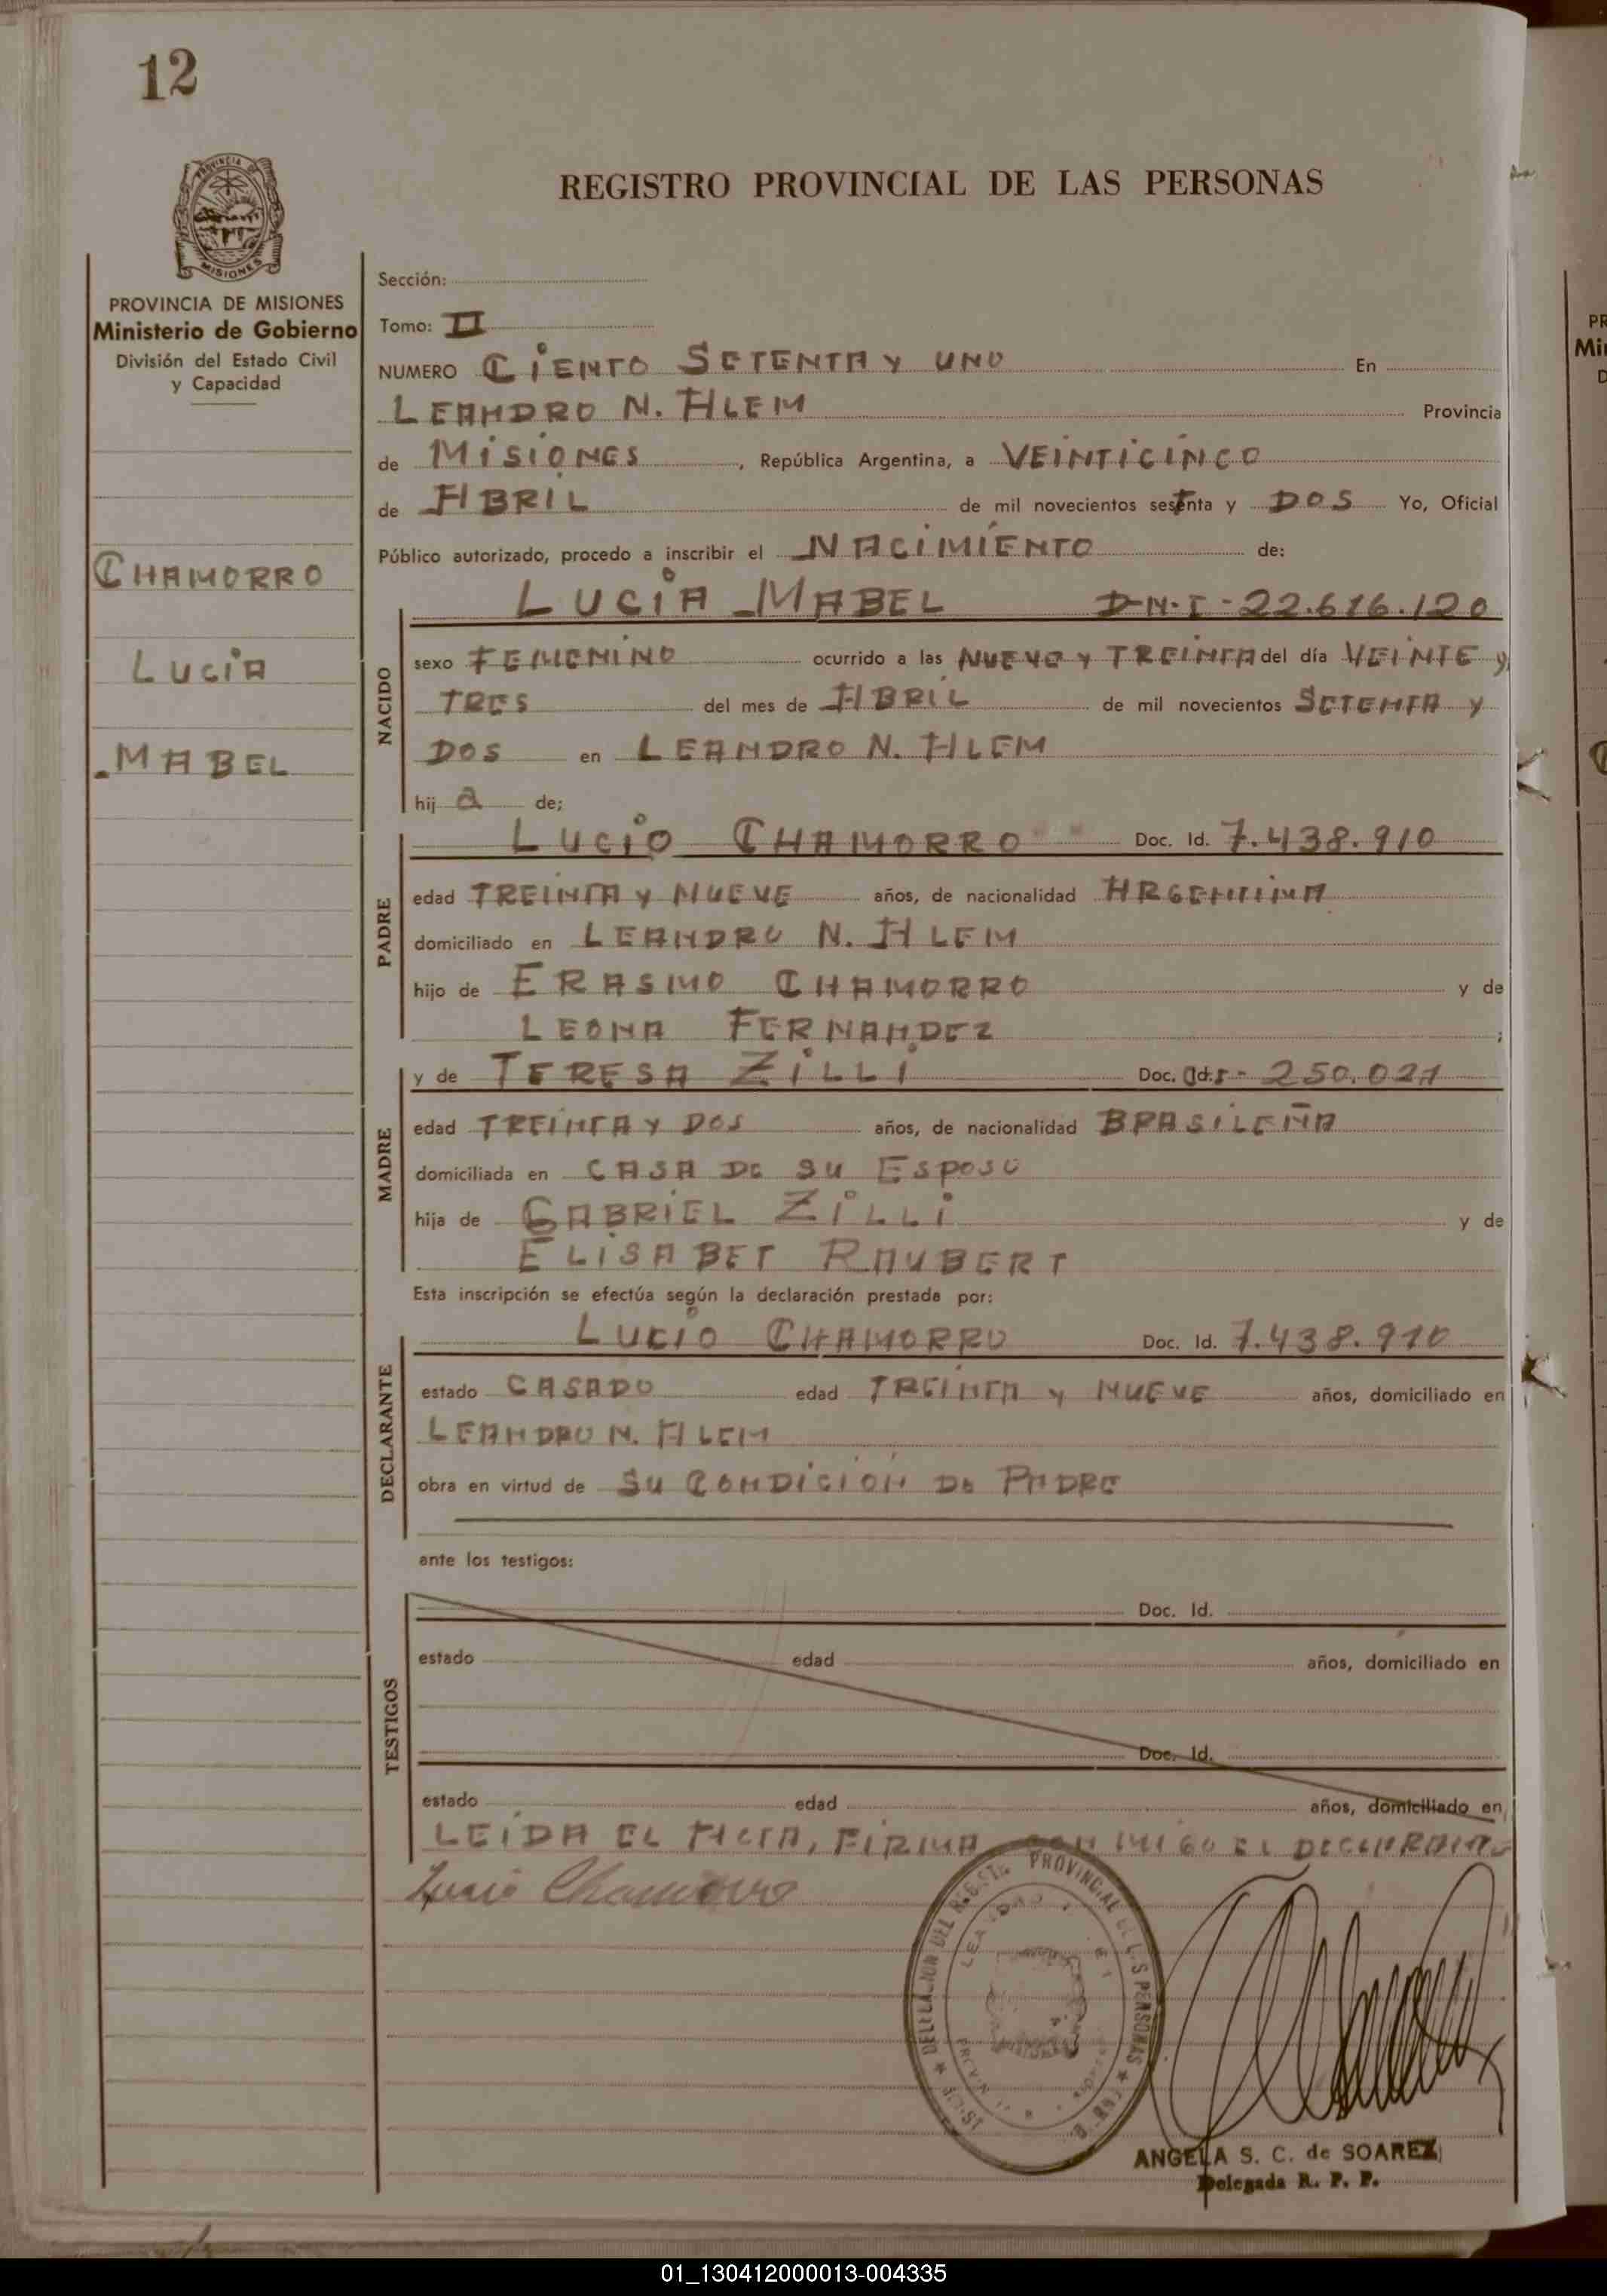 12
PROVINCIA DE
MISIONES
REGISTRO PROVINCIAL DE LAS PERSONAS
PROVINCIA DE MISIONES
Ministerio de Gobierno
División del Estado Civil
y Capacidad
CHAMORRO
LUCIA
MABEL
Sección:
Tomo: II
NUMERO CIENTO SETENTA Y UNO En
LEANDRO N. ALEM Provincia
de MISIONES, República Argentina, a VEINTICINCO
de ABRIL de mil novecientos setenta y DOS Yo, Oficial
Público autorizado, procedo a inscribir el NACIMIENTO de:
NACIDO
LUCIA MABEL D.N.I. 22.616.120
sexo FEMENINO ocurrido a las NUEVE Y TREINTA del día VEINTE y
TRES del mes de ABRIL de mil novecientos SETENTA y
DOS en LEANDRO N. ALEM
hij a de;
PADRE
LUCIO CHAMORRO Doc. Id. 7.438.910
edad TREINTA Y NUEVE años, de nacionalidad ARGENTINA
domiciliado en LEANDRO N. ALEM
hijo de ERASMO CHAMORRO y de
LEONA FERNANDEZ ;
MADRE
y de TERESA ZILLI Doc. Id. 250.021
edad TREINTA Y DOS años, de nacionalidad BRASILEÑA
domiciliada en CASA DE SU ESPOSO
hija de GABRIEL ZILLI y de
ELISABET RAUBERT
Esta inscripción se efectúa según la declaración prestada por:
DECLARANTE
LUCIO CHAMORRO Doc. Id. 7.438.910
estado CASADO edad TREINTA y NUEVE años, domiciliado en
LEANDRO N. ALEM
obra en virtud de SU CONDICION DE PADRE
ante los testigos:
TESTIGOS
Doc. Id.
estado edad años, domiciliado en
Doc. Id.
estado edad años, domiciliado en
LEIDA EL ACTA, FIRMA CONMIGO EL DECLARANTE
Lucio Chamorro
PROVINCIAL DE LAS PERSONAS
ANGELA S. C. de SOAREZ
Delegada R. P. P.
01_130412000013-004335